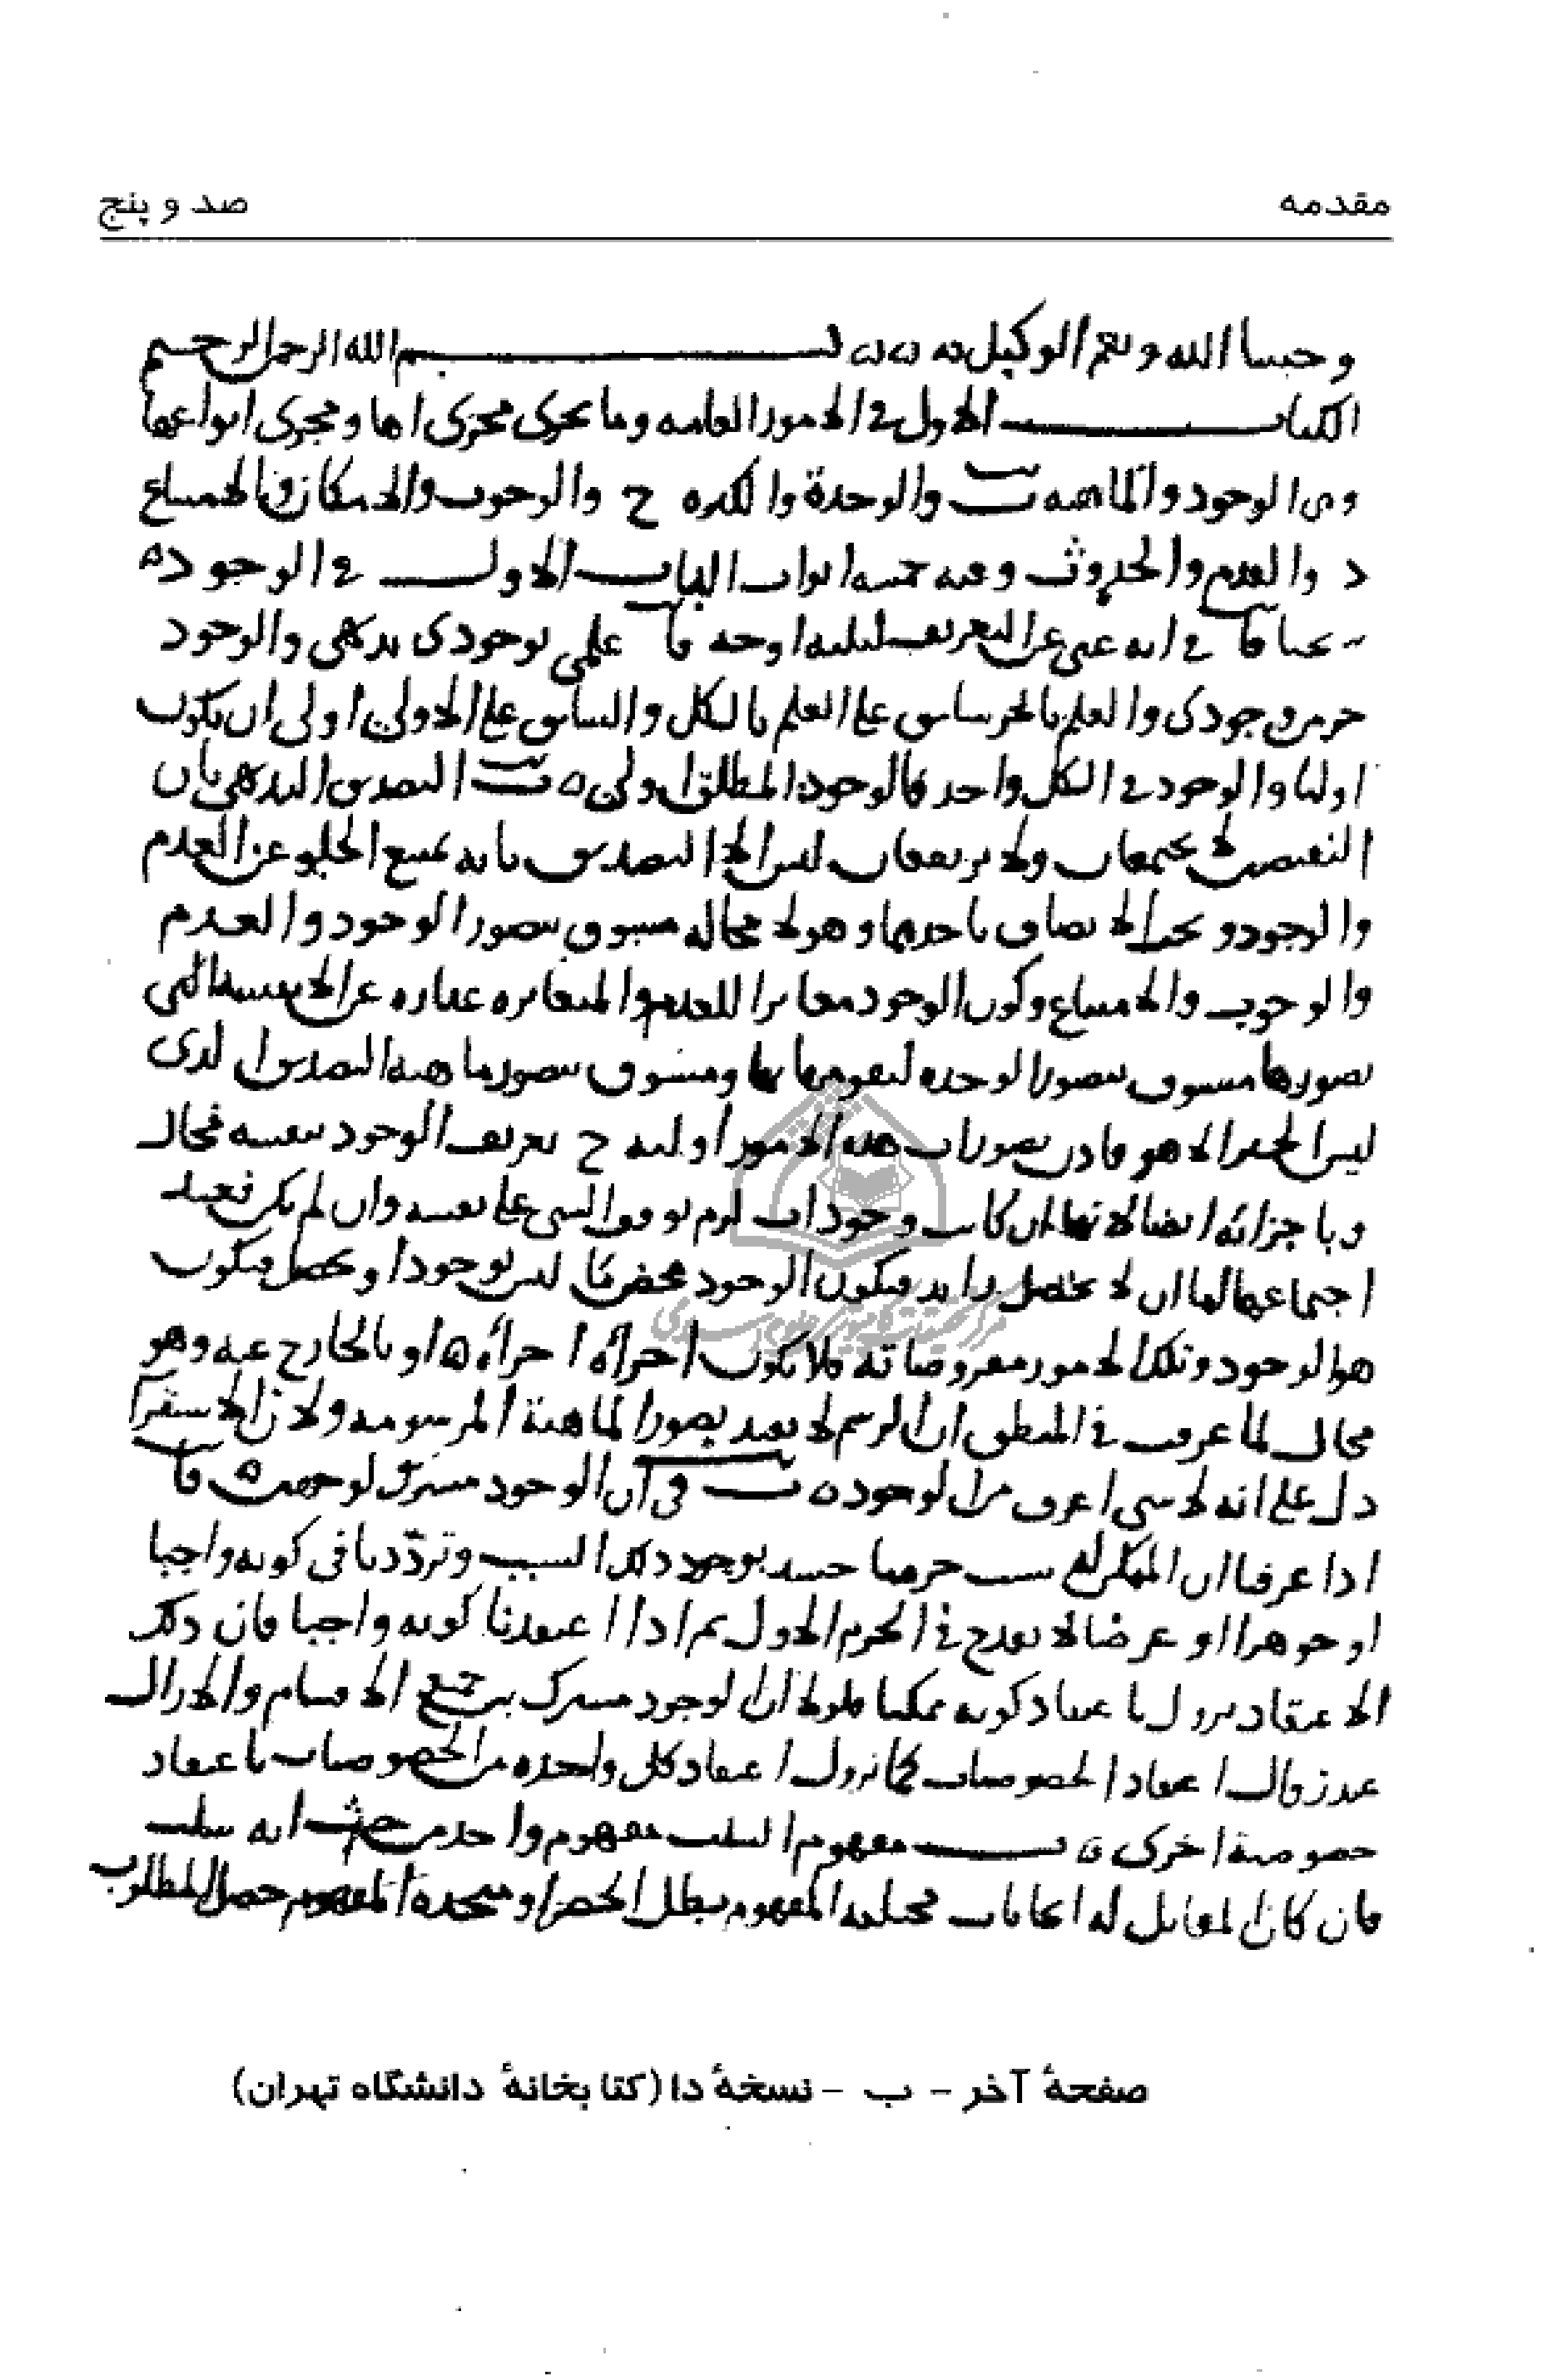 مقدمه
صد و پنج
وحسبنا الله ونعم الوكيل بسم الله الرحمن الرحيم
الكتاب الاول في الامور العامه وما يجرى مجرى مجرى انواعها
وهى الوجود والماهية والوحدة والكثره ح والوجوب والامكان والامتناع
د والقدم والحدوث وفيه خمسه ابواب الباب الاول في الوجود
في انه غنى عن التعريف اوجه علمى بوجودى بديهى والوجود
جزء من وجودى والعلم بالجزء سابق على العلم بالكل والسابق على الاولى اولى ان يكون
اوليا والوجود في الكل واحد فالوجود المطلق اولى التصديق البديهى بان
النقيضين لا يجتمعان ولا يرتفعان ليس الا التصديق بانه يمتنع الخلو عن العدم
والوجود الاتصاف باحدهما وهو لا محاله مسبوق بتصور الوجود والعدم
والوجوب والامتناع وكون الوجود مغايرا للعدم والمغايره عباره عن الاثنينية التى
تصورها مسبوق بتصور الوحده لتقومها بها ومسبوق بتصور ماهية التصديق الذى
ليس الخبر الا هو فاذن تصورات هذه الامور اوليه ح تعريف الوجود بنفسه محال
وباجزائه ايضا لانها ان كانت وجودات لزم توقف الشى على نفسه وان لم يكن فعند
اجتماعها اما ان لا يحصل زايد فيكون الوجود محض ما ليس بوجود او يحصل فيكون
هو الوجود وتلك الامور معروضاته فلا يكون اجزائه اجزائه او بالخارج عنه وهو
محال لما عرفت في المنطق ان الرسم لا يفيد تصور الماهية المرسومه ولان الاستقرا
دل على انه لا شى اعرف من الوجود في ان الوجود مشترك لوجهين
اذا عرفنا ان الممكن له سبب جزمنا حينئذ بوجود ذلك السبب وترددنا في كونه واجبا
او جوهرا او عرضا لا يقدح في الجزم الاول ثم اذا اعتقدنا كونه واجبا فان ذلك
الاعتقاد يزول باعتقاد كونه ممكنا فلولا ان الوجود مشترك بين جميع الاقسام والا لزال
عند زوال اعتقاد الخصوصيات كما يزول اعتقاد كل واحده من الخصوصيات باعتقاد
خصوصية اخرى مفهوم السلب مفهوم واحد من حيث انه سلب
فان كان المقابل له اثباتات مختلفه المفهوم بطل الحصر او متحدة المفهوم حصل المطلوب
صفحهٔ آخر - ب - نسخهٔ دا (کتابخانهٔ دانشگاه تهران)